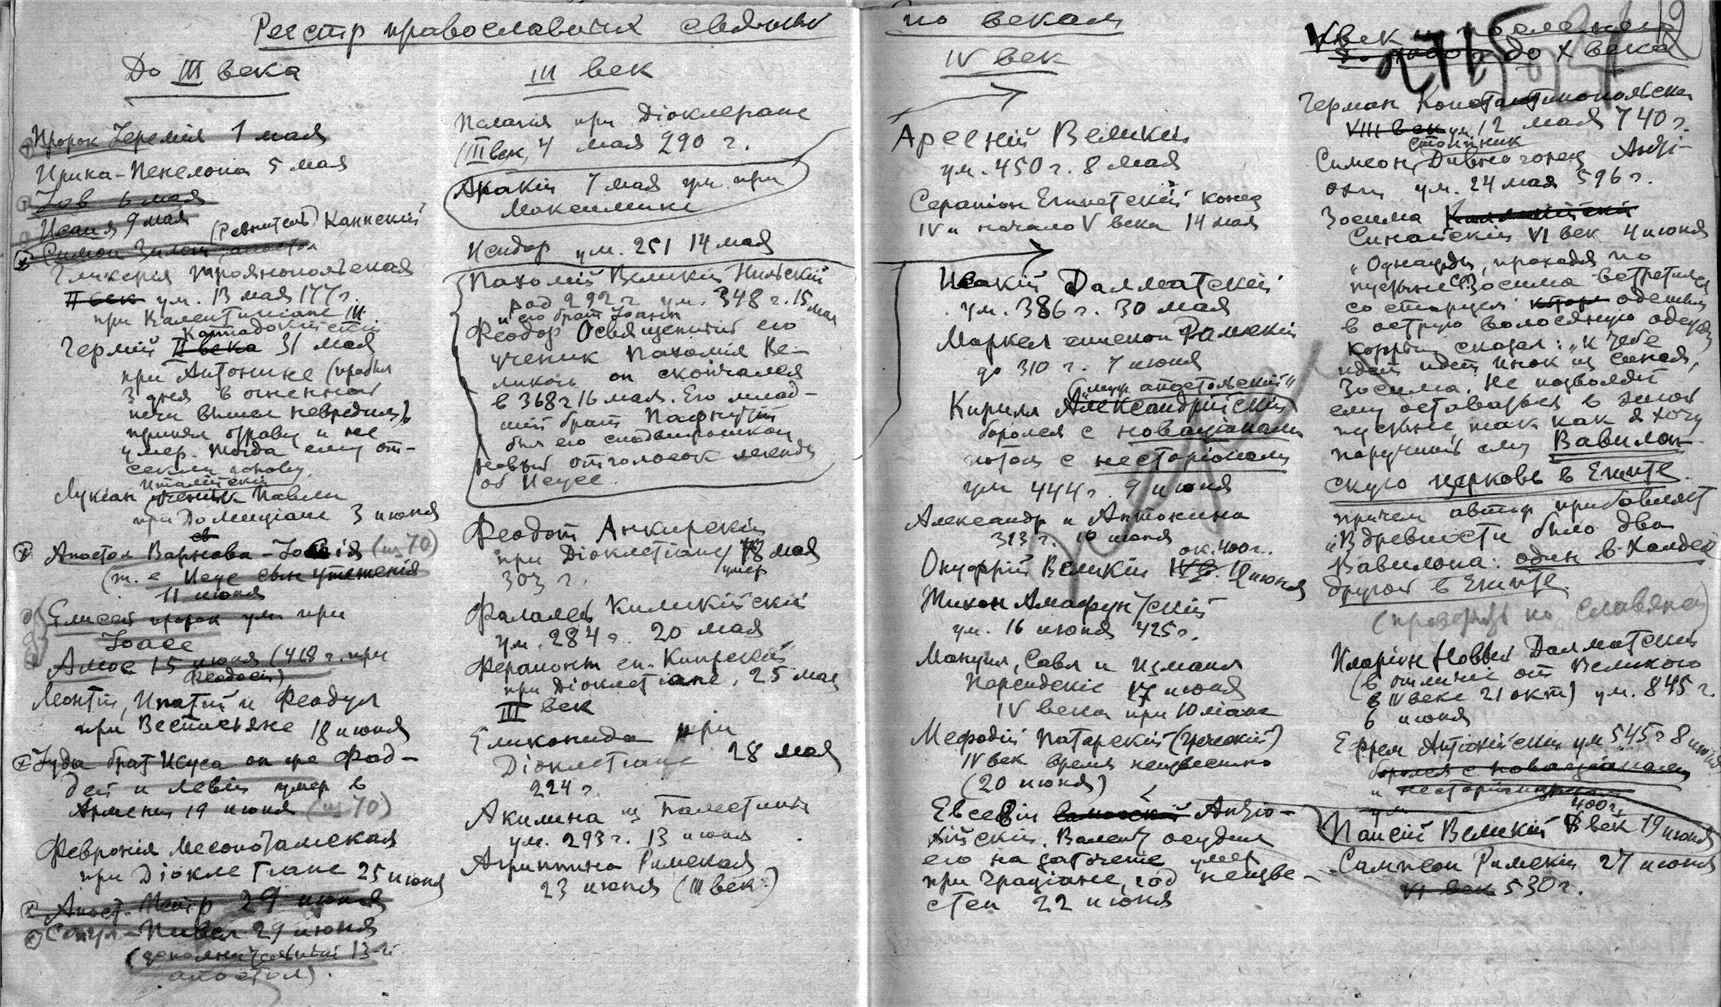 Реестр православных святых
по векам
До III века
Пророк Іеремія 1 мая
Ирина-Пенелопа 5 мая
Іов 6 мая
Исаия 9 мая
(Ревнитель) Канитскій
Симон Зилот, апостол
Гликерія Трояпопольская
II век ум. 13 мая 177 г.
при Валентиніане III
Каппадокийский
Гермій II века 31 мая
при Антонине (пробыл
3 дня в огненной
печи вышел невредим,
принял отраву и не
умер. Тогда ему от-
секли голову.
Италійскій
Лукіан ученик Павла
при Домиціане 3 июня
св
Апостол Варнава-Іосія (из 70)
(т. е Иеус сын утешенія
11 июня
Елисей пророк ум при
Іоасе
Амос 15 июня (418 г. при
Феодосіи)
Леонтій, Ипатій и Феодул
при Веспасьяне 18 июня
Іуда брат Исуса он же Фад-
дей и Левій умер в
Армении 19 июня (из 70)
Феврония Месопотамская
при Діоклетіане 25 июня
Апост. Петр 29 июня
Савул-Павел 29 июня
(дополнительный 13-й
апостол).
III век
Пелагія при Діоклетіане
(III век, 4 мая 290 г.
Акакій 7 мая ум. при
Максимине
Исидор ум. 251 14 мая
Пахомій Великій Нильскій
род 292 г. ум. 348 г. 15 мая
и его брат Іоанн
Феодор Освященный его
ученик Пахомія Ве-
ликого он скончался
в 368 г 16 мая. Его млад-
ший брат Пафнутій
был его сподвижником
новый отголосок легенды
об Исусе.
Феодот Анкирскій
при Діоклетіане 18 мая
умер
303 г.
Фалалей Киликійскій
ум. 284 г. 20 мая
Ферапонт еп. Кипрскій
при Діоклетіане, 25 мая
III век
Еликонида при
Діоклетіане 28 мая
224 г.
Акилина из Палестины
ум. 293 г. 13 июня
Агриппина Римская
23 июня (III век.)
IV век
Арсеній Великій
ум. 450 г. 8 мая
Серапіон Египетскій конец
IV и начало V века 14 мая
Исакій Далматскій
ум. 386 г. 30 мая
Маркел епископ Римскій
до 310 г. 7 июня
"муж апостольский"
Кирилл Александрійскій
боролся с новаціанами
потом с несторіанами
ум 444 г. 9 июня
Александр и Антонина
313 г. 10 июня
ок. 400 г.
Онуфрій Великій IV в. 12 июня
Тихон Амафунтскій
ум. 16 июня 425 г.
Мануил, Савл и Измаил
Персидскіе 17 июня
IV века при Юліане
Мефодій Патарскій (греческій)
IV век время неизвестно
(20 июня)
Евсевій Антіо-
хійскій. Валент осудил
его на заточеніе умер
при Граціане, год неизве-
стен 22 июня
V век и
до X века
Герман Константинопольскій
VIII век ум. 12 мая 740 г.
столпник
Симеон Дивногорец Антіо-
ум. 24 мая 596 г.
Зосима
Синайскій VI век 4 июня
"Однажды, проходя по
пустыне Зосима встретился
со старцем котор одетым
в острую волосяную одежду
который сказал: "к тебе
идет инок из Синая,
Зосима. Не позволяй
ему оставаться в этой
пустыне так как я хочу
поручить ему Вавилон-
скую церковь в Египте.
причем автор прибавляет
"В древности было два
Вавилона: один в Халдее
другой в Египте
(проверить по славянск)
Иларіон Новый Далматскій
(в отличіе от Великого
в IV веке 21 окт) ум. 845 г.
6 июня
Ефрем Антіохійскій ум 545 г 8 июня
боролся с новаціанами
" несторіанами
400 г.
Паисій Великій V век 19 июня
Сампсон Римскій 27 июня
VI век 530 г.